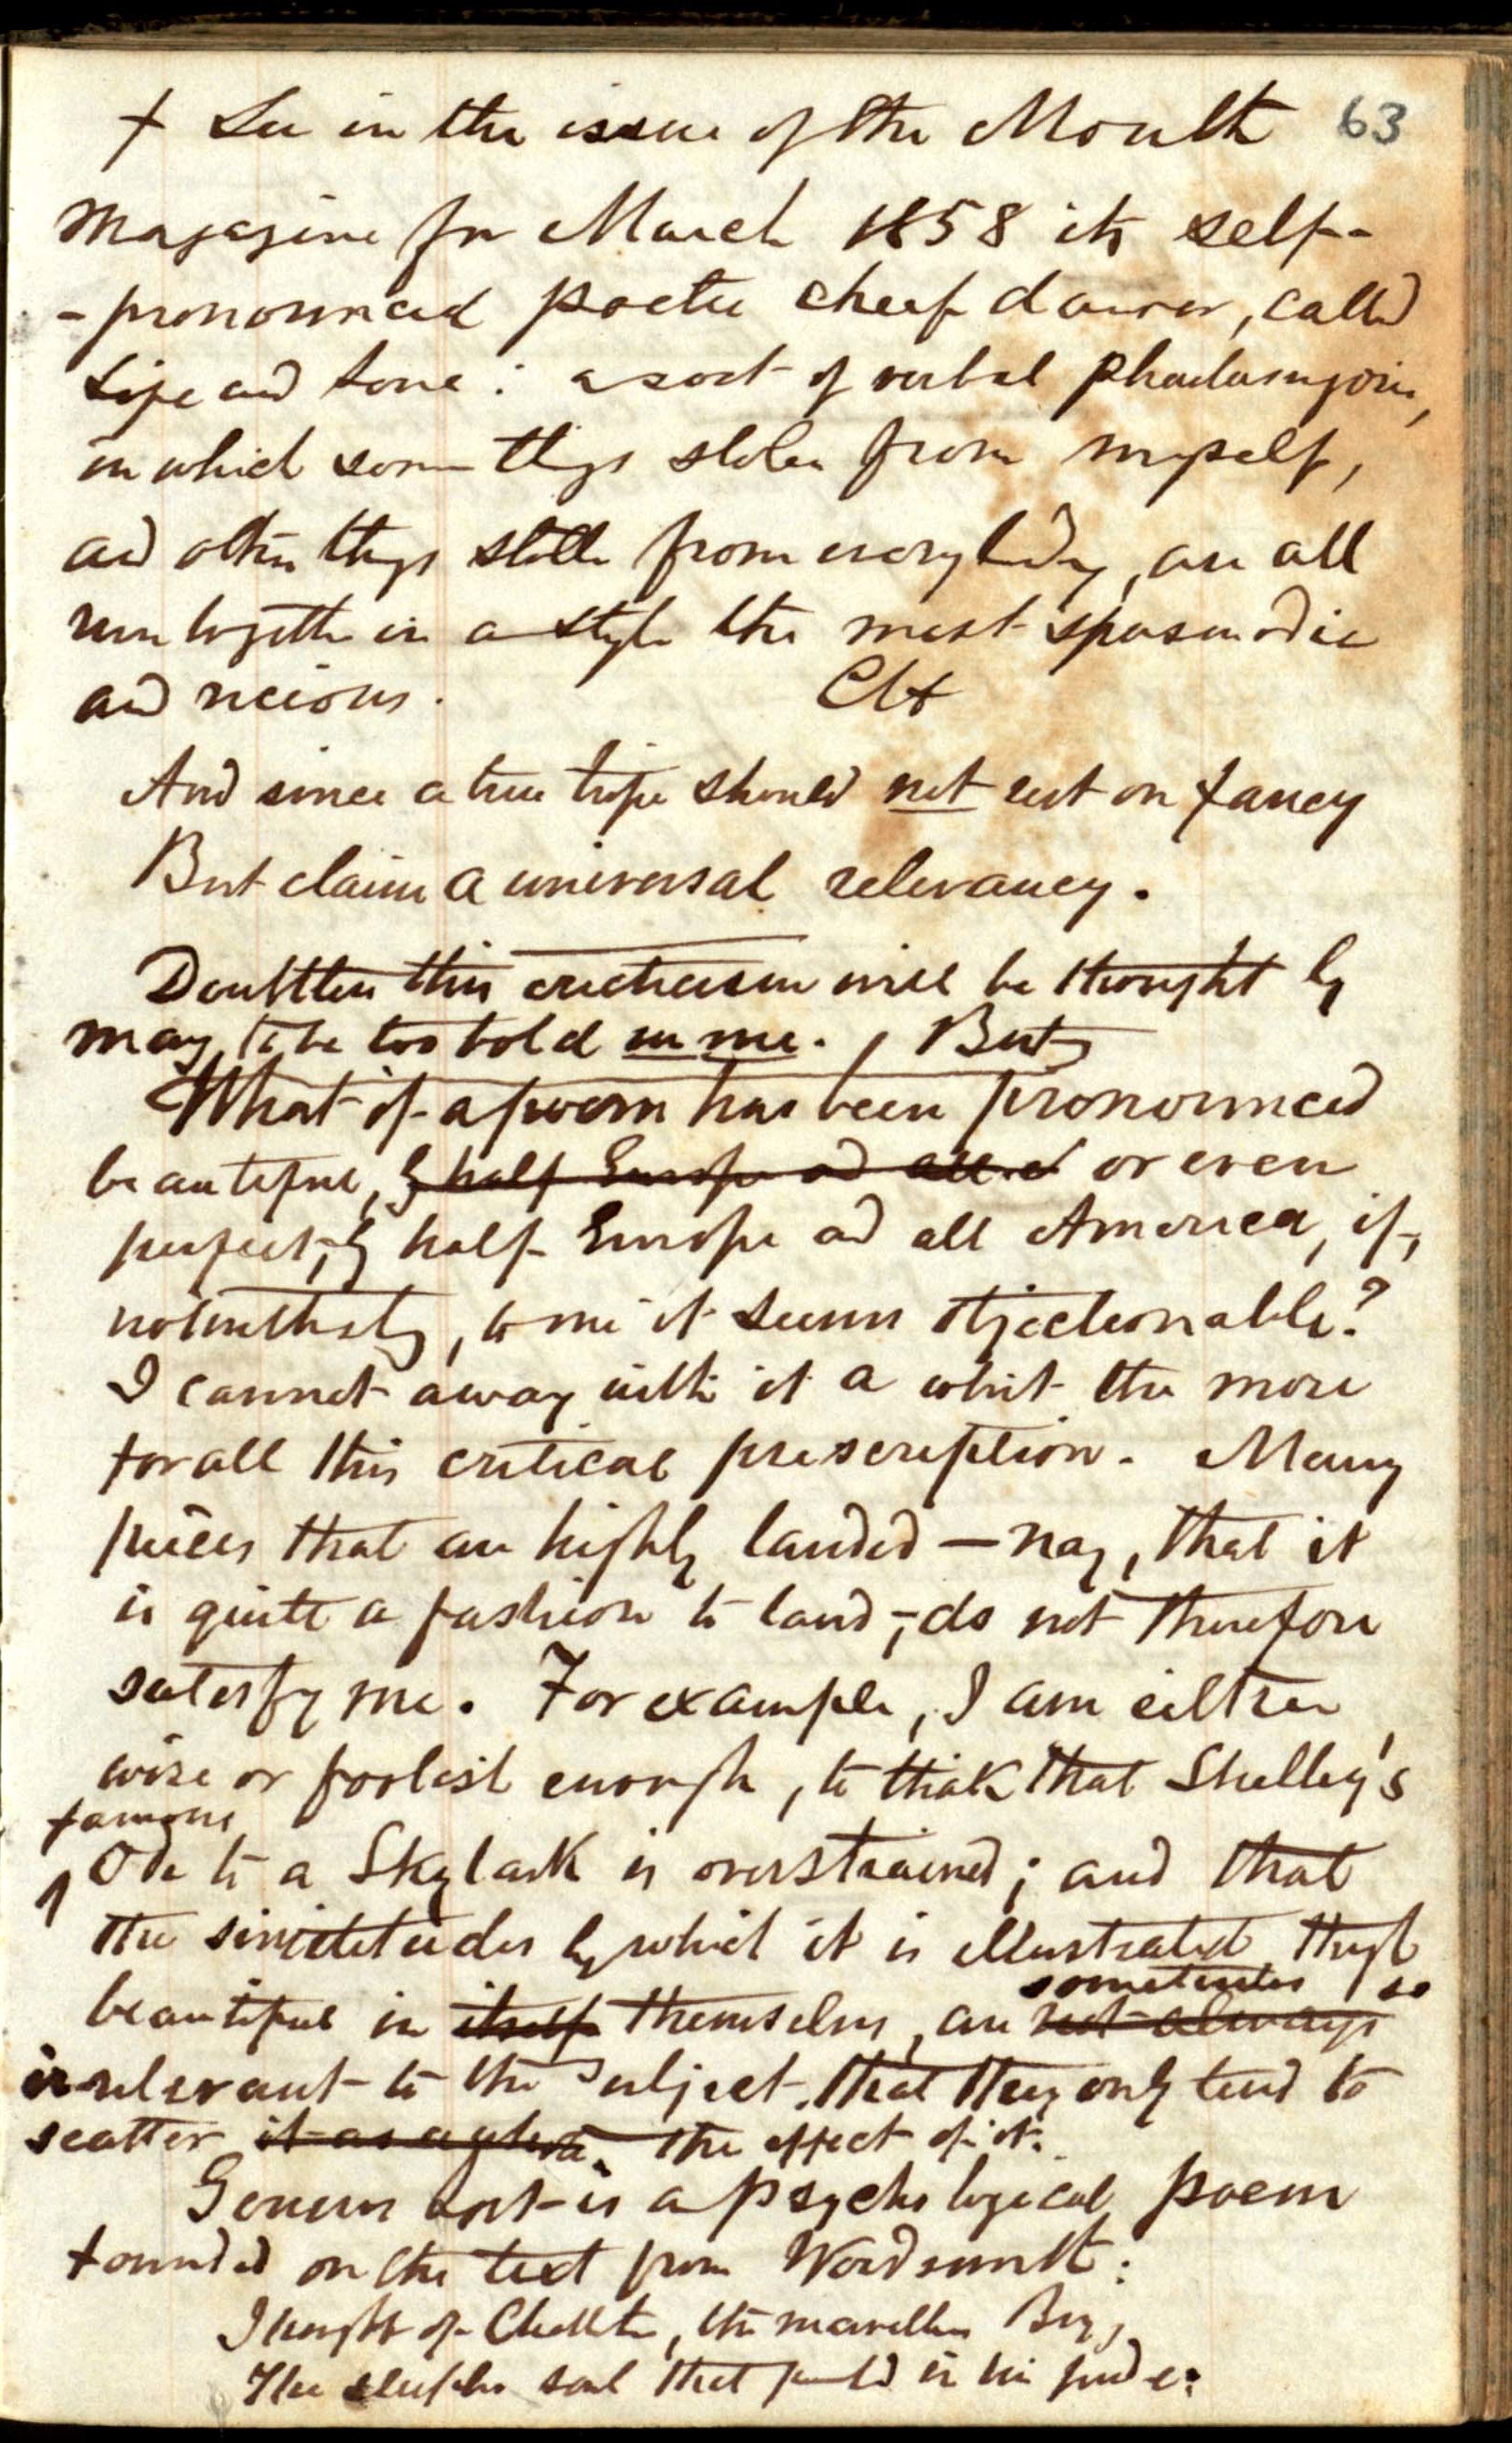 † See in the issue of the Month 63
Magazine for March 1858 its self-
-pronounced poetic cheef d'œuvre, called
Life and Love: a sort of verbal phadasmgoria,
in which some things stolen from myself,
and other things stolen from everybody, are all
run together in a style the most spasmodic
and vicious. CH
And since a true trope should not rest on fancy
But claim a universal relevancy.
Doubtless this criticism will be thought by
many to be too bold in me. But
What if a poem has been pronounced
beautiful, by half Europe and all or even
perfect, by half Europe and all America, if,
notwithstg, to me it seems objectionable?
I cannot away with it a whit the more
for all this critical prescription. Many
pieces that are highly lauded — nay, that it
is quite a fashion to laud, — do not therefore
satisfy me. For example, I am either
wise or foolish enough, to think that Shelley's
famous
Ode to a Skylark is overstrained; and that
the similitudes by which it is illustrated though
sometimes so
beautiful in itself themselves, are not always
irrelevant to the subject, that they only tend to
scatter it as a whole the effect of it.
Genius Lost is a psychological poem
founded on the text from Wordsworth:
I thought of Chattertn, the marvellous Boy,
The sleepless soul that perished in his pride: